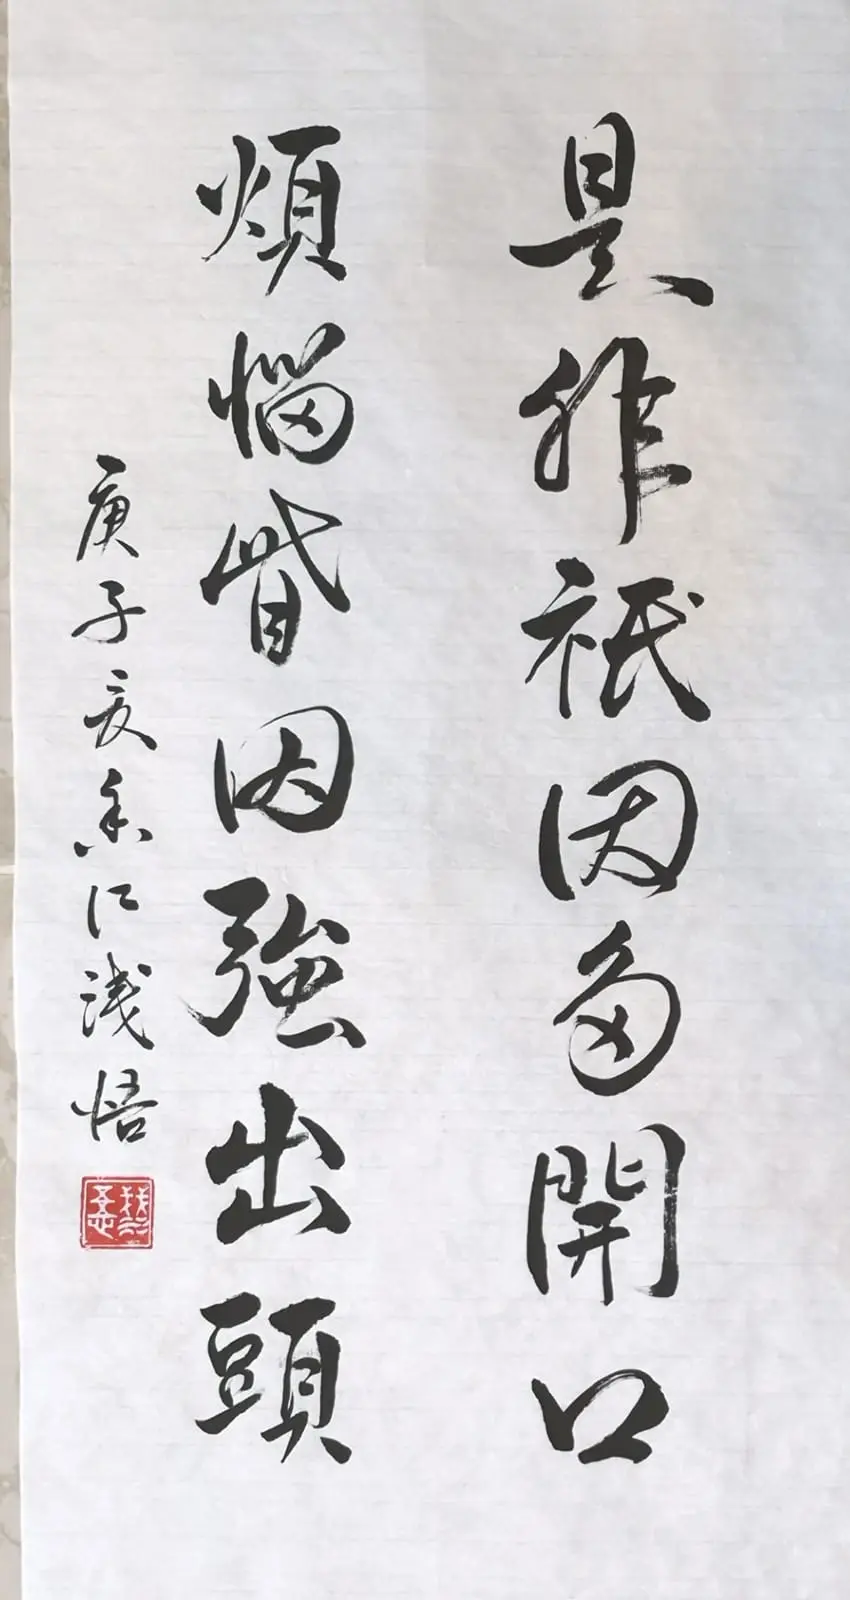 是非祇因多開口
煩惱皆因強出頭
庚子夏香江淺悟